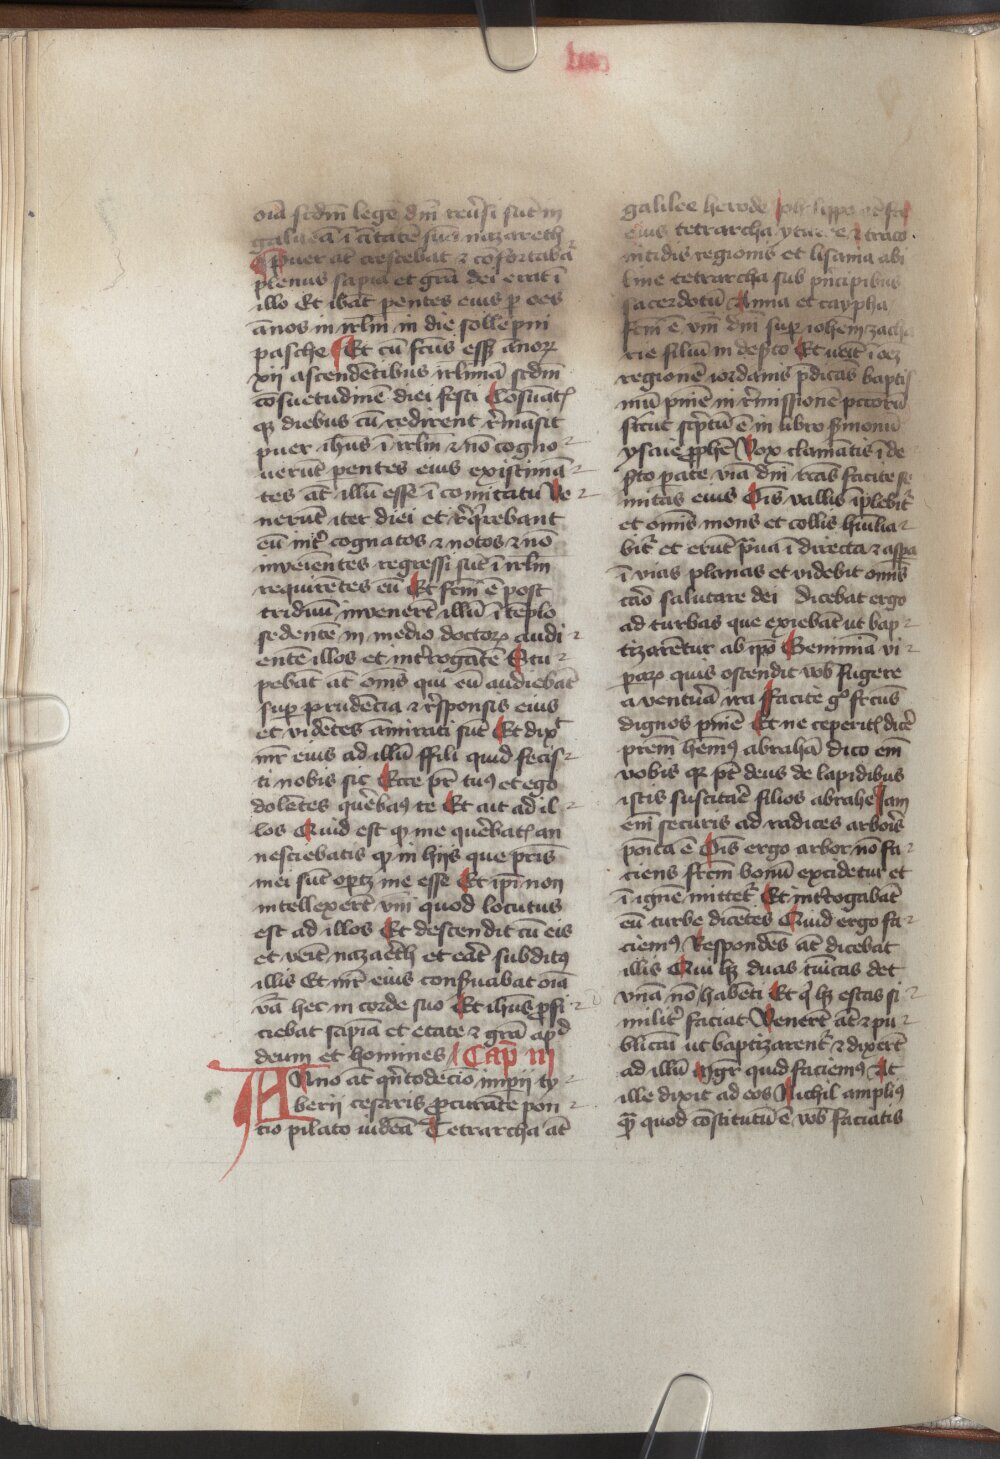 oīa scdm̄ legē dn̄i reūsi sūt in
galileā ī ciitatē suā nazareth
Puer aūt crescebat ⁊ cōfortabā⸗
plenus sapīa et grā dei erat ī
illo Et ibāt pentes eius p oēs
ānos in irlm̄ in die sollepni
pasche Et cū fcūs essꝫ ānoꝝ
xij ascendētibus irlimā scdm̄
cōsuetudinē diei festi Cōsūmat
qꝫ diebus cū redirent r̄māsit
puer ih̄us ī irlm̄ ⁊ nō cogno⸗
uerūt pentes eius existimā⸗
tes aūt illū esse ī comitatu Ve⸗
nerūt iter diei et r̄q̄rebant
eū int̄ cognatos ⁊ notos ⁊ nō
inveīentes regressi sūt ī irlm̄
requirētes eū Et fcm̄ ē post
triduū invener̄t illū ī tēplo
sedentē in medio doctoꝝ audi⸗
entē illos et int̄rogātē Stu⸗
pebat aūt om̄s qui eū audiebāt
sup prudēcia ⁊ r̄sponsis eius
et vidētes āmirati sūt Et dixt
mr̄ eius ad illū ffili quid fecis⸗
ti nobis sic Ecce pr̄ tuꝰ et ego
dolētes quer̄baꝰ te Et ait ad il⸗
los Quid est qꝫ me quer̄bat an
nesciebatis qꝫ in hijs que pr̄is
mei sūt oꝑtꝫ me esse Et ip̄i non
intellexer̄t v̄m quod locutus
est ad illos Et descendit cū eis
et veīt nazaēth et er̄at subditꝰ
illis Et mr̄ eius conſuabat oīa
v̄a hec in corde suo Et ih̄us ꝓfi⸗
ciebat sapīa et etate ⁊ grā apd
deum et homines Cap̄ iii
Anno aūt qn̄todecīo imp̄ii ty⸗
berij cesaris ꝓcurāte pon⸗
cio pilato iudeā Tetrarcha aūt
galilee herode ph̄ilippo aūt frē
eius tetrarcha yturee ⁊ traco
nitidis regionis et lisania abi
line tetrarcha sub pn̄cipibus
sacerdotū Anna et caypha
fcm̄ ē v̄m dn̄i sup ioh̄em zacha
rie filiū in deſto Et ueīt ī oēꝫ
regionē iordanis p̄dicās baptis
mū pn̄iē in r̄missionē pccorū
sicut sc̄ptū ē in libro ſmonū
ysaie ꝓphē Vox clamātis ī de⸗
ſto parate viā dn̄i rcās facite se
mitas eius Oīs vallis īplebit̄
et omīs mons et collis hūilia⸗
bit̄ et erūt p̄ua ī directa ⁊ aspa
ī vias planas et videbit omīs
caro salutare dei dicebat ergo
ad turbas que exiebāt ut bap⸗
tizarētur ab ip̄o Genimīa vi⸗
paꝝ quis ostendit vob fugere
a ventūa ira Facite gͦ frcūs
dignos pn̄iē Et ne ceperit dicē
prēm hēmꝰ abrahā dico em̄
vobis qꝫ pt̄ deus de lapidibus
istis suscitaē filios abrahe Iam
em̄ securis ad radices arboꝝ
poīta ē Oīs ergo arbor nō fa⸗
ciens frcm̄ bonū excidetur et
ī ignē mittet̄ Et int̄rogabāt
eū turbe dicētes Quid ergo fa⸗
ciemꝰ Respondēs aūt dicebat
illis Qui hꝫ duas tūicas det
vnā nō habēti Et q̄ hꝫ escas si⸗
milit̄ faciat Vener̄t aūt ⁊ pu⸗
blicāi ut baptizarent̄ ⁊ dixer̄t
ad illū Mgr̄ quid faciemꝰ At
ille dixit ad eos Nichil ampliꝰ
qꝫ quod cōstitutū ē vob faciatis